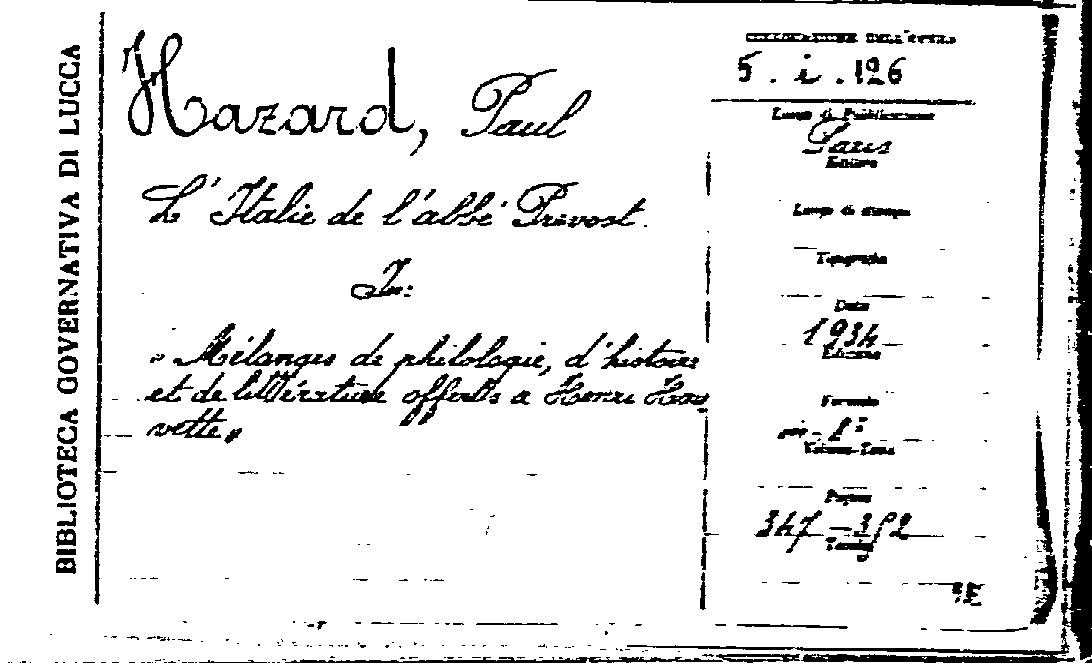 BIBLIOTECA GOVERNATIVA DI LUCCA
Hazard, Paul
L'Italie de l'abbé Prevost.
In:
"Mélanges de philologie, d'histoire
et de littérature offerts a Henri Hau-
vette"
COLLOCAZIONE DELL'OPERA
5. i. 126
Luogo di Pubblicazione
Paris
Editore
Luogo di stampa
Tipografia
Data
1934
Edizione
Formato
in-8°
Volume-Tomo
Pagine
347-352